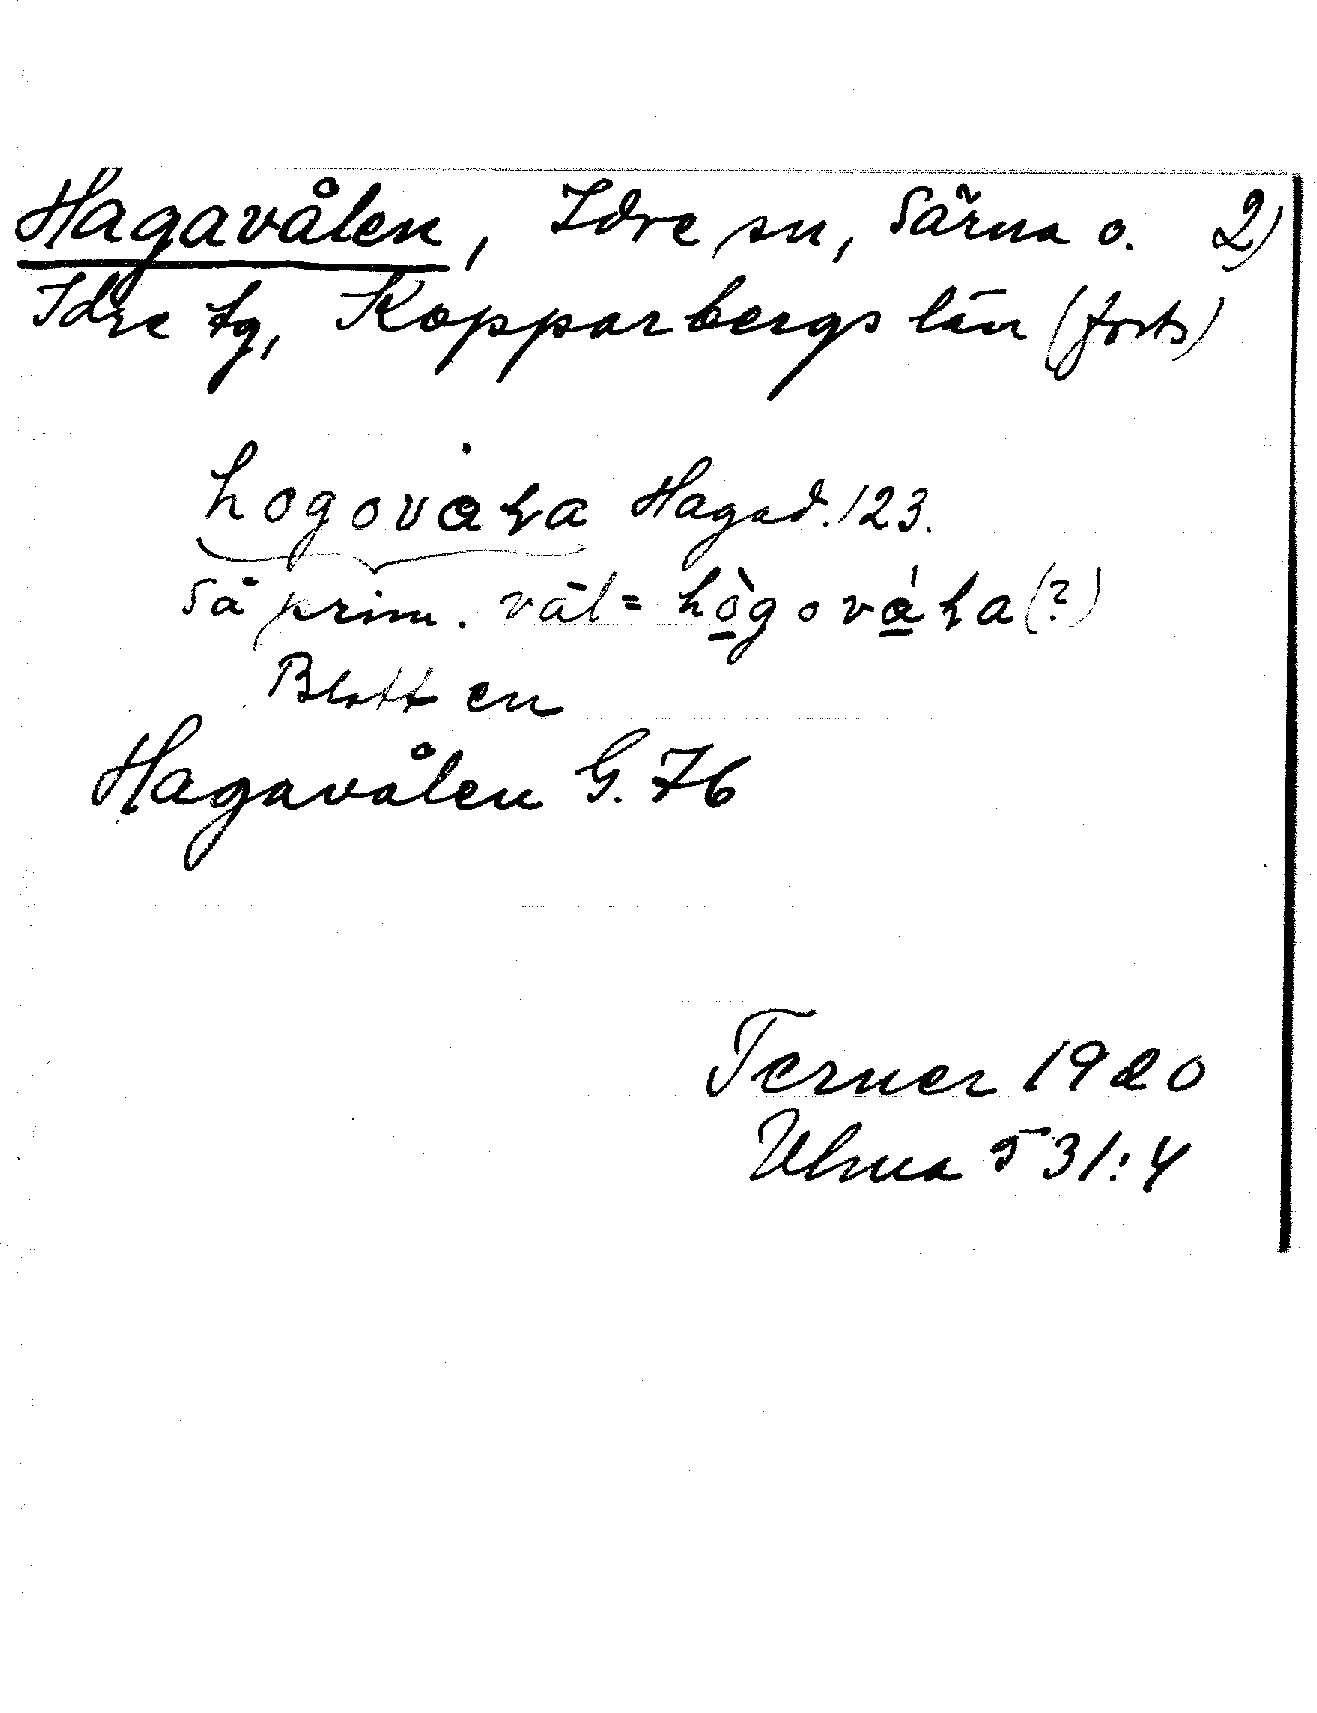 Hagavålen, Idre sn, Särna o. 2)
Idre tg, Kopparbergs län (forts)
hogovaɫa Hagad. 123.
Så prim. väl = hògováɫa (?)
Blott en
Hagavålen G. 76
Terner 1920
Ulma 531:4